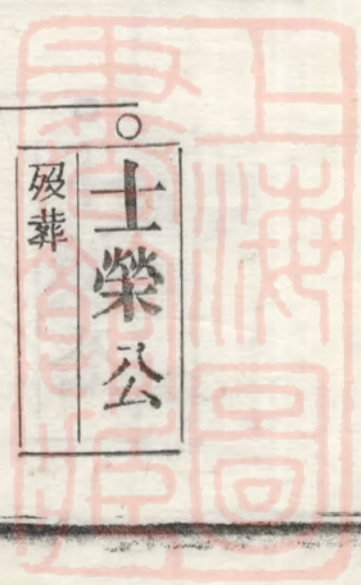 士榮公
歿葬
上海圖書館藏